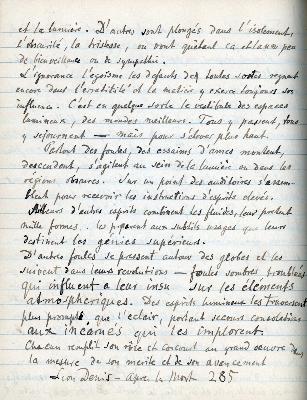 et la lumière. D'autres sont plongés dans l'isolement,
l'obscurité, la tristesse, ou vont quêtant çà et là un peu
de bienveillance ou de sympathie.
L'ignorance l'égoïsme les défauts de toutes sortes regnent
encore dans l'erraticité et la matière y exerce toujours son
influence. C'est en quelque sorte le vestibule des espaces
lumineux, des mondes meilleurs. Tous y passent, tous
y séjournent — mais pour s'élever plus haut.
Partout des foules, des essaims d'âmes montent,
descendent, s'agitent au sein de la lumière ou dans les
régions obscures. Sur un point des auditoires s'assem-
blent pour recevoir les instructions d'esprits élevés.
Ailleurs d'autres esprits combinent les fluides, leur prêtent
mille formes, les préparent aux subtils usages que leurs
destinent les génies supérieurs.
D'autres foules se pressent autour des globes et les
suivent dans leurs révolutions — foules sombres troublées
qui influent à leur insu sur les éléments
atmosphériques. Des esprits lumineux les traversent
plus prompts que l'éclair, portant secours consolations
aux incarnés qui les implorent.
Chacun remplit son rôle et concourt au grand œuvre dans
la mesure de son mérite et de son avancement
Léon Denis — Après la Mort 285